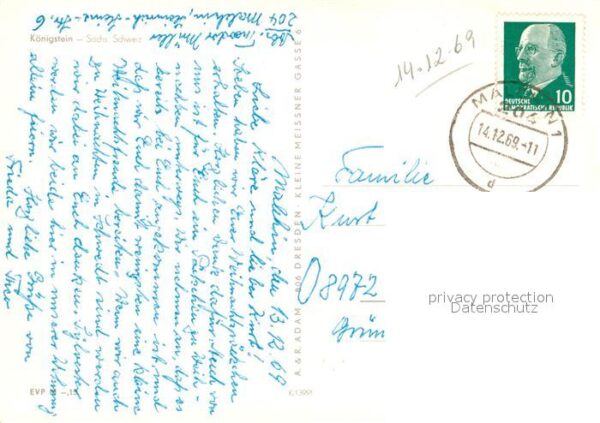 Königstein – Sächs. Schweiz
Abs. Theodor Müller
204 Malchin, Heinrich-Heine-Str. 6
Malchin, den 13.12.69
Liebe Kläre und lieber Kurt!
haben wir Euer Weihnachtspäckchen
erhalten. Herzlichen Dank dafür. Auch von
uns ist für Euch ein Päckchen zu Weih-
nachten unterwegs. Wir nehmen an, daß es
bereits bei Euch angekommen ist und
daß wir Euch damit wenigstens eine kleine
Weihnachtsfreude bereiten. Wenn wir auch
zu Weihnachten in Schwedt sind werden
wir dabei an Euch denken. Sylvester
werden wir beide hier in unserer Wohnung
allein feiern. Herzliche Grüße von
Frieda und Theo
EVP
K 13991
A. & R. ADAM · 806 DRESDEN · KLEINE MEISSNER GASSE 6
14.12.69
DEUTSCHE
DEMOKRATISCHE REPUBLIK
10
MALCHIN 1
204
14.12.69.-11
Familie
Kurt
08972
Grün
privacy protection
Datenschutz